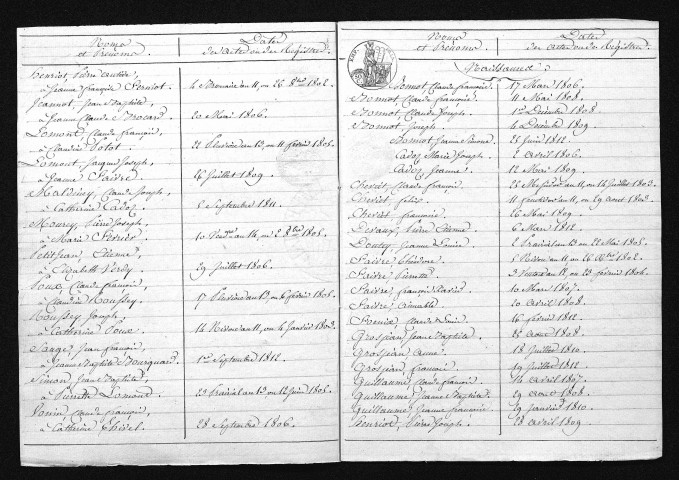 Noms et Prénoms.
Dates des actes ou des Registres.
Henriot, Pierre Antoine,
à Jeanne françoise
4 Brumaire an 11, ou 26 8bre 1802.
Jeannot, Jean Baptiste,
à Jeanne Claude Brocard.
20 Mai 1806.
Lomont, Claude françois,
à Claudine Votot.
22 Pluviose an 13, ou 11 février 1805.
Lomont, Jacques Joseph,
à Jeanne Faivre.
26 Juillet 1809.
Maldiney, Claude Joseph,
à Catherine Cadoz.
5 Septembre 1811.
Mourey, Pierre Joseph,
à Marie Perrier.
10 Vendre an 14, ou 2 8bre 1805.
Petitjean, Etienne,
à Elisabeth Verdy.
29 Juillet 1806.
Roux, Claude françois,
à Claudine Roussey.
17 Pluviose an 13, ou 6 février 1805.
Roussey, Joseph,
à Catherine Roux.
14 Nivose an 11, ou 4 Janvier 1803.
Sauget, Jean françois,
à Jeanne Baptiste Bourquard.
1er Septembre 1812.
Simon, Jean Baptiste,
à Pierrette Lomont.
23 Prairial an 13, ou 12 Juin 1805.
Vernier, Claude françois,
à Catherine
28 Septembre 1806.
Noms et Prénoms.
Dates des actes ou des Registres.
Naissances
Bomot, Claude françois. 17 Mars 1806.
Bomot, Claude françois. 11 Mai 1808.
Bomot, Claude Joseph. 1er Décembre 1808.
Bomot, Joseph. 6 Décembre 1809.
Bomot, Jeanne Simone. 21 Juin 1812.
Cadoz, Marie Joseph. 2 Avril 1806.
Cadoz, Jeanne. 12 Mai 1809.
Cheviet, Claude françois. 25 Messidor an 11, ou 14 Juillet 1803.
Cheviet, félix. 11 fructidor an 11, ou 29 aout 1803.
Cheviet, françoise. 26 Mai 1809.
Devaux, Pierre Etienne. 6 Mars 1812.
Douty, Jeanne Louise. 2 Prairial an 13 ou 22 Mai 1805.
Faivre, Théodore. 5 Nivose an 11, ou 26 Xbre 1802.
Faivre, Pierrette. 3 Ventose an 11, ou 22 février 1803.
Faivre, françois Xavier. 10 Mars 1807.
Faivre, Aimable. 20 Avril 1808.
Claude Louis. 16 février 1812.
Grosjean, Jeanne Baptiste. 28 aout 1808.
Grosjean, Anne. 18 Juillet 1810.
Grosjean, françoise. 19 Juillet 1812.
Guillaume, Claude françois. 14 Avril 1807.
Guillaume, Jeanne Baptiste. 29 aout 1808.
Guillaume, Jeanne françoise. 29 Janvier 1810.
Henriot, Pierre Joseph. 28 Avril 1809.